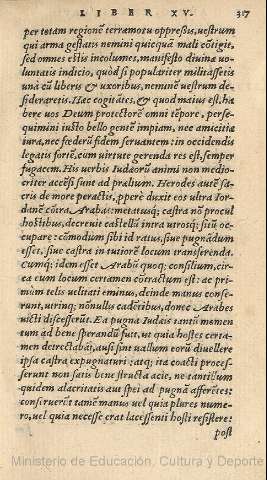 LIBER XV. 317
per totam regionẽ terramotu oppreſſus, ueſtrum
qui arma geſtatis nemini quicquã mali cõtigit,
ſed omnes eſtis incolumes, manifeſto diuinæ uo-
luntatis indicio, quòd ſi populariter militaſſetis
unà cũ liberis & uxoribus, neminẽ ueſtrum de-
ſideraretis. Hæc cogitãtes, & quod maius eſt, ha
bere uos Deum protectorẽ omni tẽpore, perſe-
quimini iuſto bello gentẽ impiam, nec amicitiæ
iura, nec fœderũ fidem ſeruantem: in occidendis
legatis fortẽ, cum uirtute gerenda res eſt, ſemper
fugacem. His uerbis Iudæorũ animi non medio-
criter accẽſi ſunt ad prælium. Herodes autẽ ſa-
cris de more peractis, ꝓperè duxit eos ultra Ior-
danẽ cõtra Arabas: metatusq́; caſtra nõ procul
hoſtibus, decreuit caſtellũ intra utroſq́; ſitũ oc-
cupare: cõmodum ſibi id ratus, ſiue pugnãdum
eſſet, ſiue caſtra in tutiorẽ locum transferenda.
Cumq́; idem eſſet Arabũ quoq; conſilium, cir-
ca eum locum certamen cõtractum eſt: ac pri-
mùm telis uelitati eminus, deinde manus conſe-
runt, utrinq; nõnullis cadẽtibus, donec Arabes
uicti diſceſſerũt. Ea pugna Iudæis tantũ momen
tum ad bene ſperandũ fuit, ut quia hoſtes certa-
men detrectabãt, auſi ſint uallum eorũ diuellere
ipſa caſtra expugnaturi: atq; ita coacti proceſ-
ſerunt non ſatis bene ſtructa acie, ne tantillum
quidem alacritatis aut ſpei ad pugnã afferẽtes:
conſeruerũt tamẽ manus uel quia plures nume-
ro, uel quia neceſſe erat laceſſenti hoſti reſiſtere:
poſt
Ministerio de Educación, Cultura y Deporte